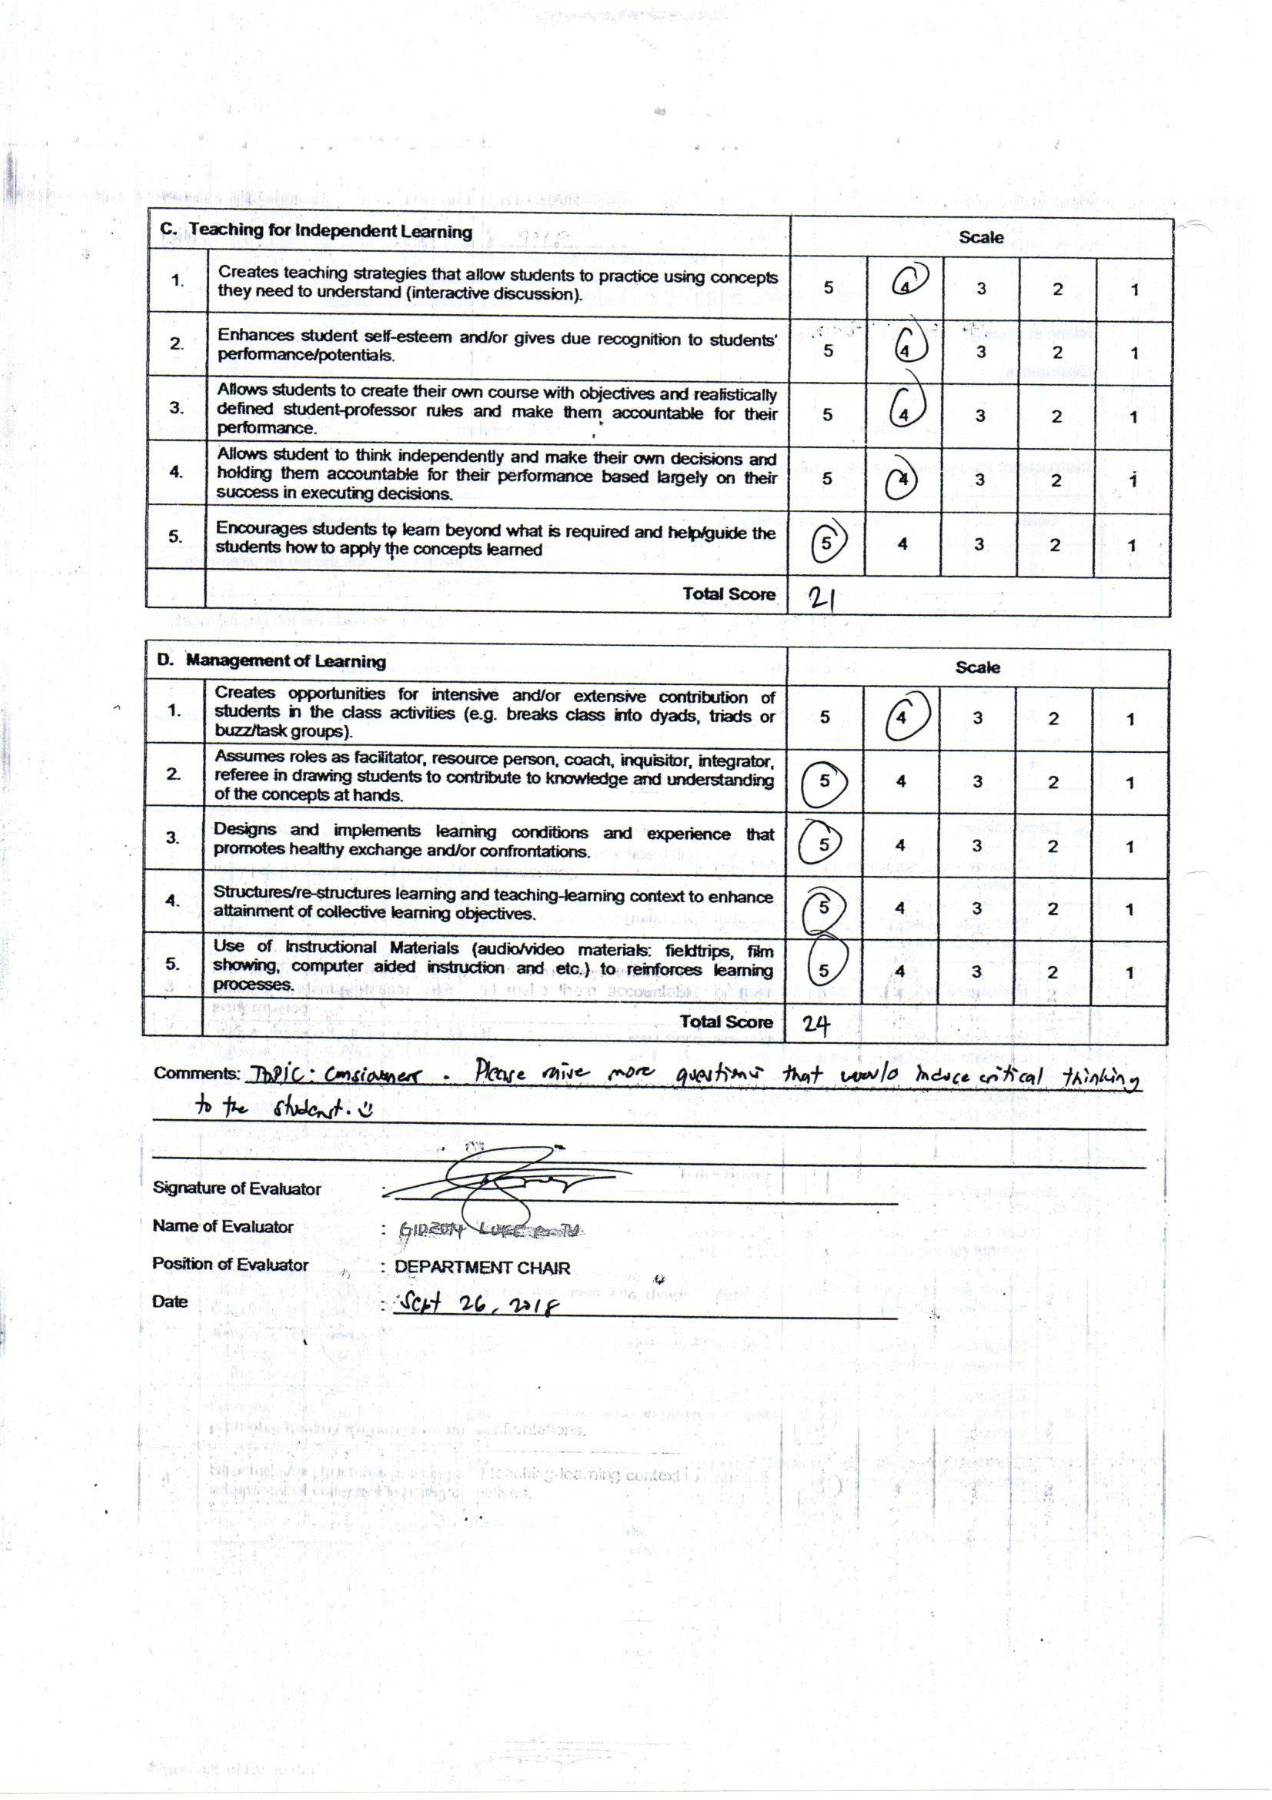 C. Teaching for Independent Learning Scale
1. Creates teaching strategies that allow students to practice using concepts
they need to understand (interactive discussion). 5 4 3 2 1
2. Enhances student self-esteem and/or gives due recognition to students'
performance/potentials. 5 4 3 2 1
3. Allows students to create their own course with objectives and realistically
defined student-professor rules and make them accountable for their
performance. 5 4 3 2 1
4. Allows student to think independently and make their own decisions and
holding them accountable for their performance based largely on their
success in executing decisions. 5 4 3 2 1
5. Encourages students to learn beyond what is required and help/guide the
students how to apply the concepts learned 5 4 3 2 1
Total Score 21
D. Management of Learning Scale
1. Creates opportunities for intensive and/or extensive contribution of
students in the class activities (e.g. breaks class into dyads, triads or
buzz/task groups). 5 4 3 2 1
2. Assumes roles as facilitator, resource person, coach, inquisitor, integrator,
referee in drawing students to contribute to knowledge and understanding
of the concepts at hands. 5 4 3 2 1
3. Designs and implements learning conditions and experience that
promotes healthy exchange and/or confrontations. 5 4 3 2 1
4. Structures/re-structures learning and teaching-learning context to enhance
attainment of collective learning objectives. 5 4 3 2 1
5. Use of Instructional Materials (audio/video materials: fieldtrips, film
showing, computer aided instruction and etc.) to reinforces learning
processes. 5 4 3 2 1
Total Score 24
Comments: TOPIC: . Please raise more questions that would induce critical thinking
to the student.
Signature of Evaluator :
Name of Evaluator :
Position of Evaluator : DEPARTMENT CHAIR
Date : Sept 26, 2018